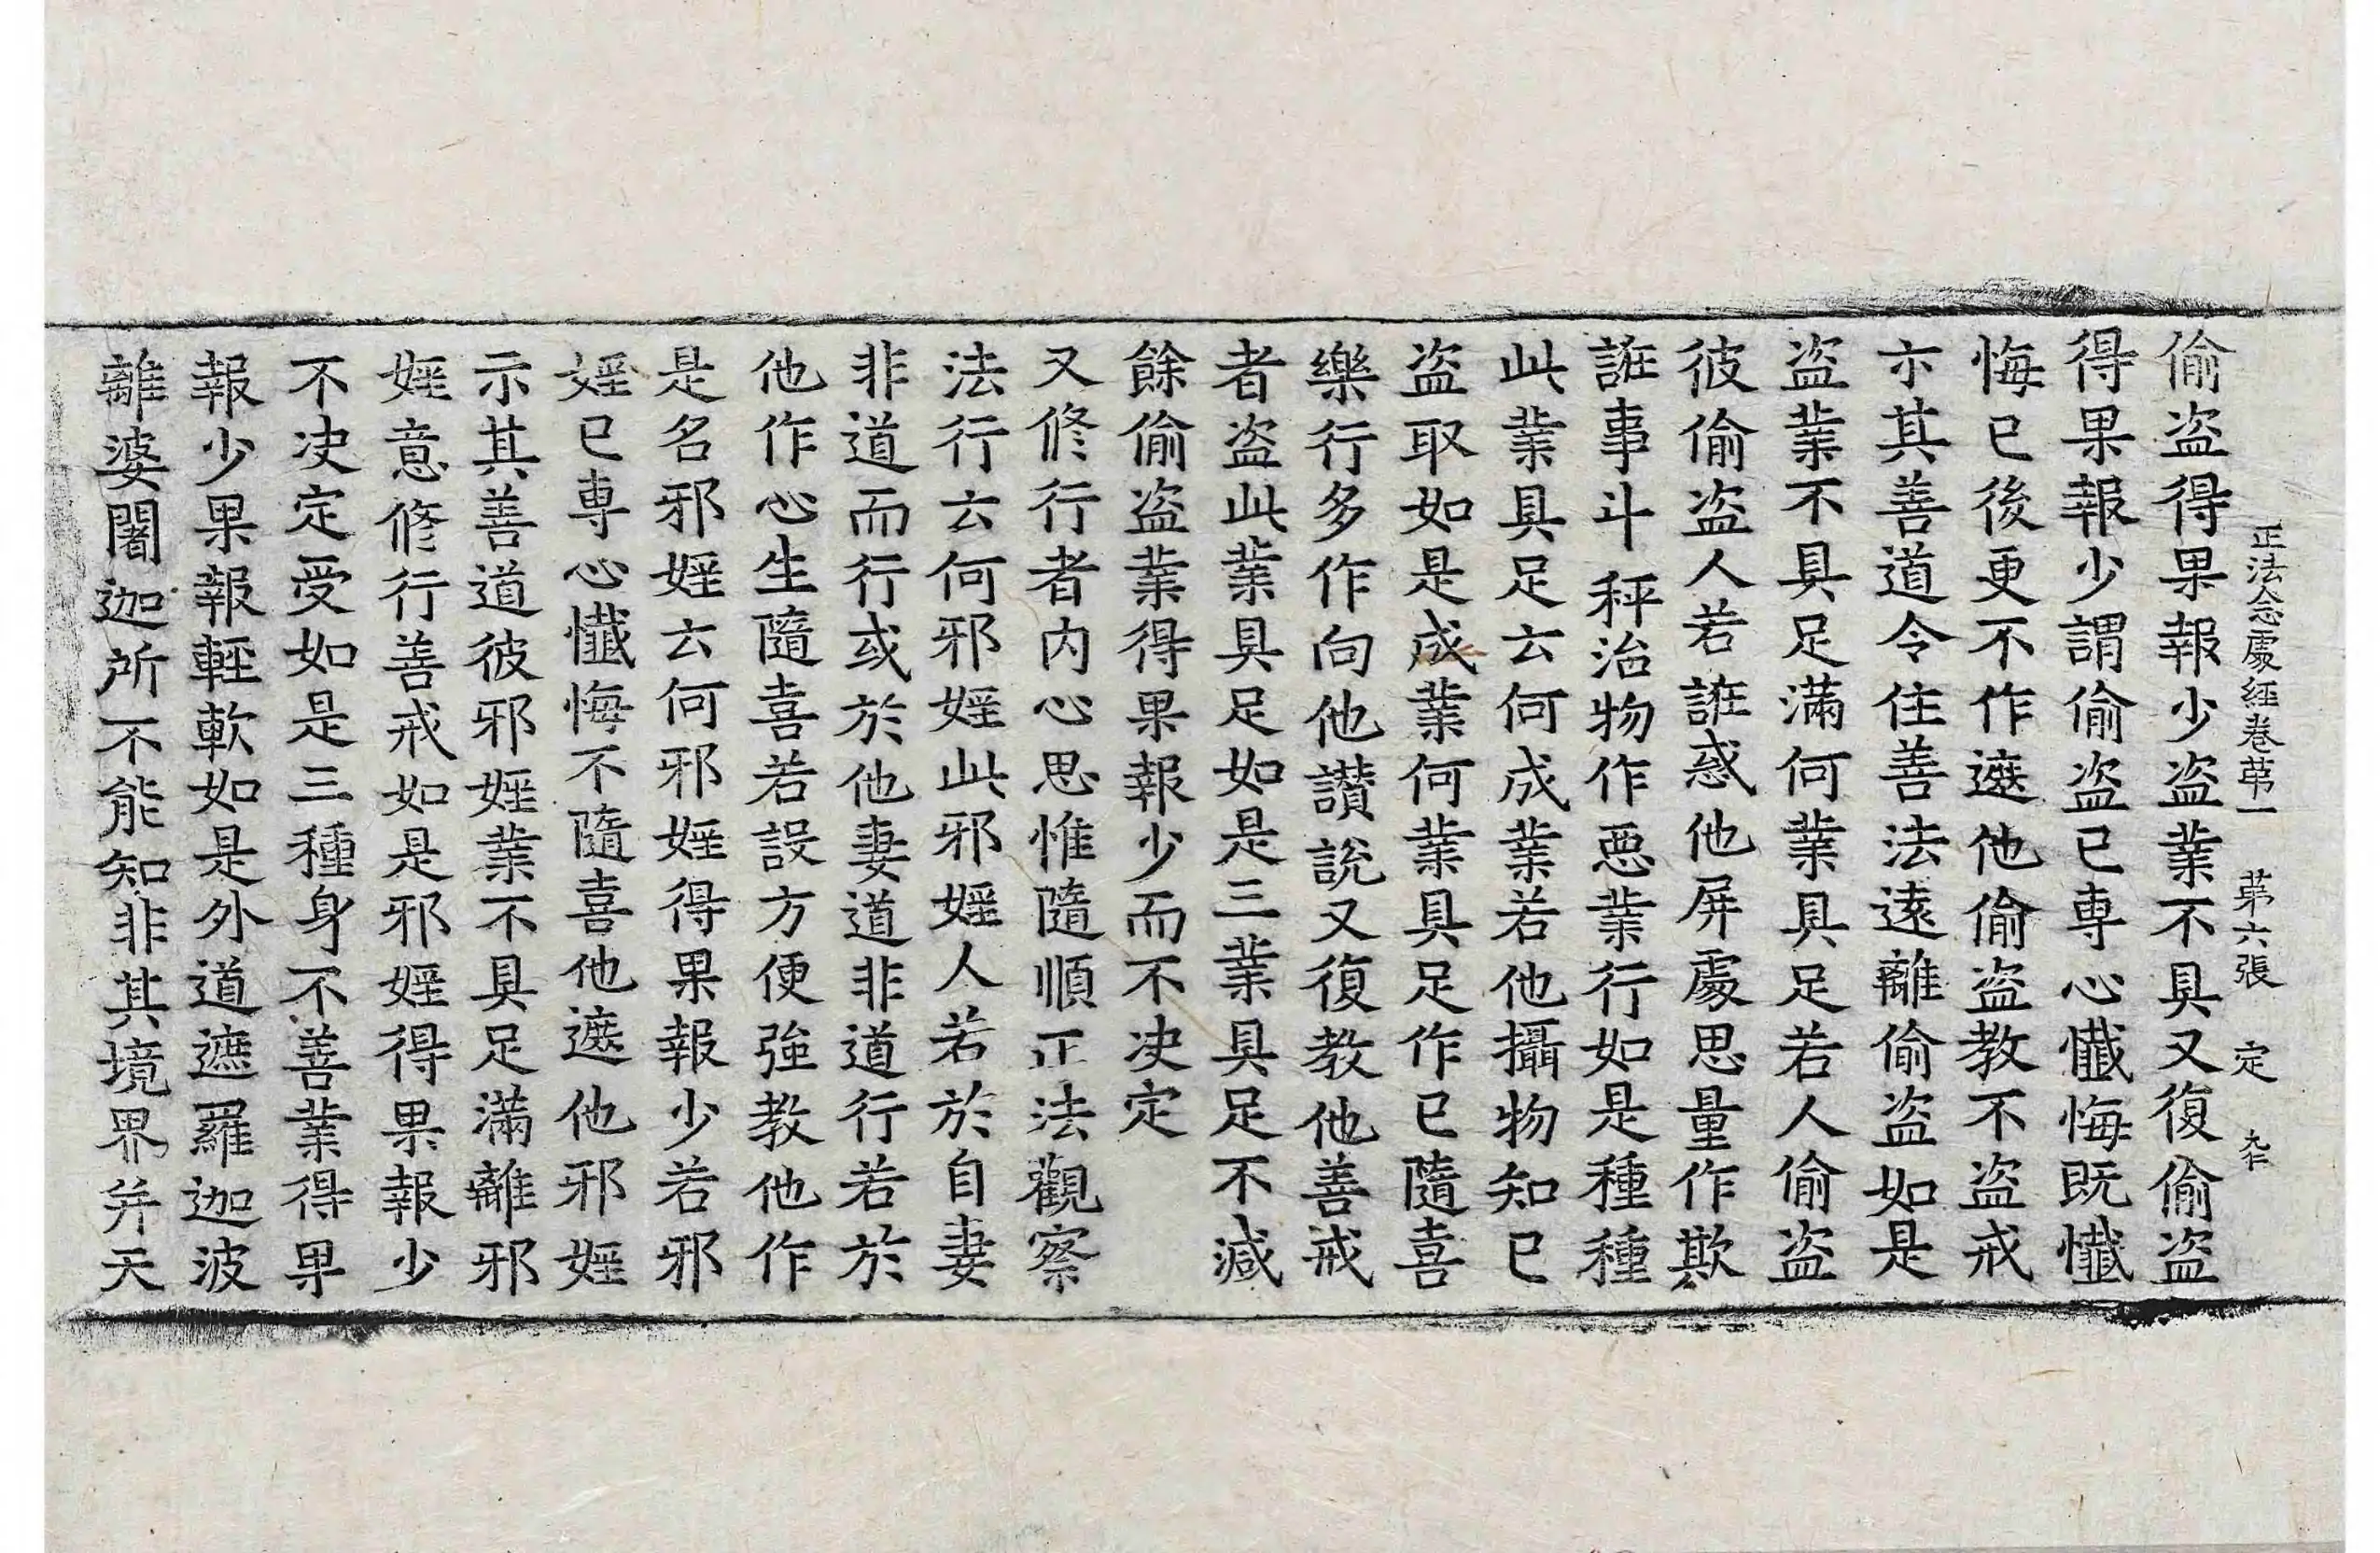 正法念處經卷苐一 苐六張 定
偷盗得果報少盗業不具又復偷盗
得果報少謂偷盗已専心懺悔既懺
悔已後更不作遮他偷盗教不盗戒
亦其善道令住善法遠離偷盗如是
盗業不具足滿何業具足若人偷盗
彼偷盗人若誑惑他屏處思量作欺
誑事斗秤治物作惡業行如是種種
此業具足云何成業若他攝物知已
盗取如是成業何業具足作已隨喜
樂行多作向他讃說又復教他善戒
者盗此業具足如是三業具足不減
餘偷盗業得果報少而不决定
又修行者内心思惟隨順正法觀察
法行云何邪婬此邪婬人若於自妻
非道而行或於他妻道非道行若於
他作心生隨喜若設方便強教他作
是名邪婬云何邪婬得果報少若邪
婬已専心懺悔不隨喜他遮他邪婬
示其善道彼邪婬業不具足滿離邪
婬意修行善戒如是邪婬得果報少
不决定受如是三種身不善業得果
報少果報輕軟如是外道遮羅迦波
離婆闍迦所不能知非其境界并天